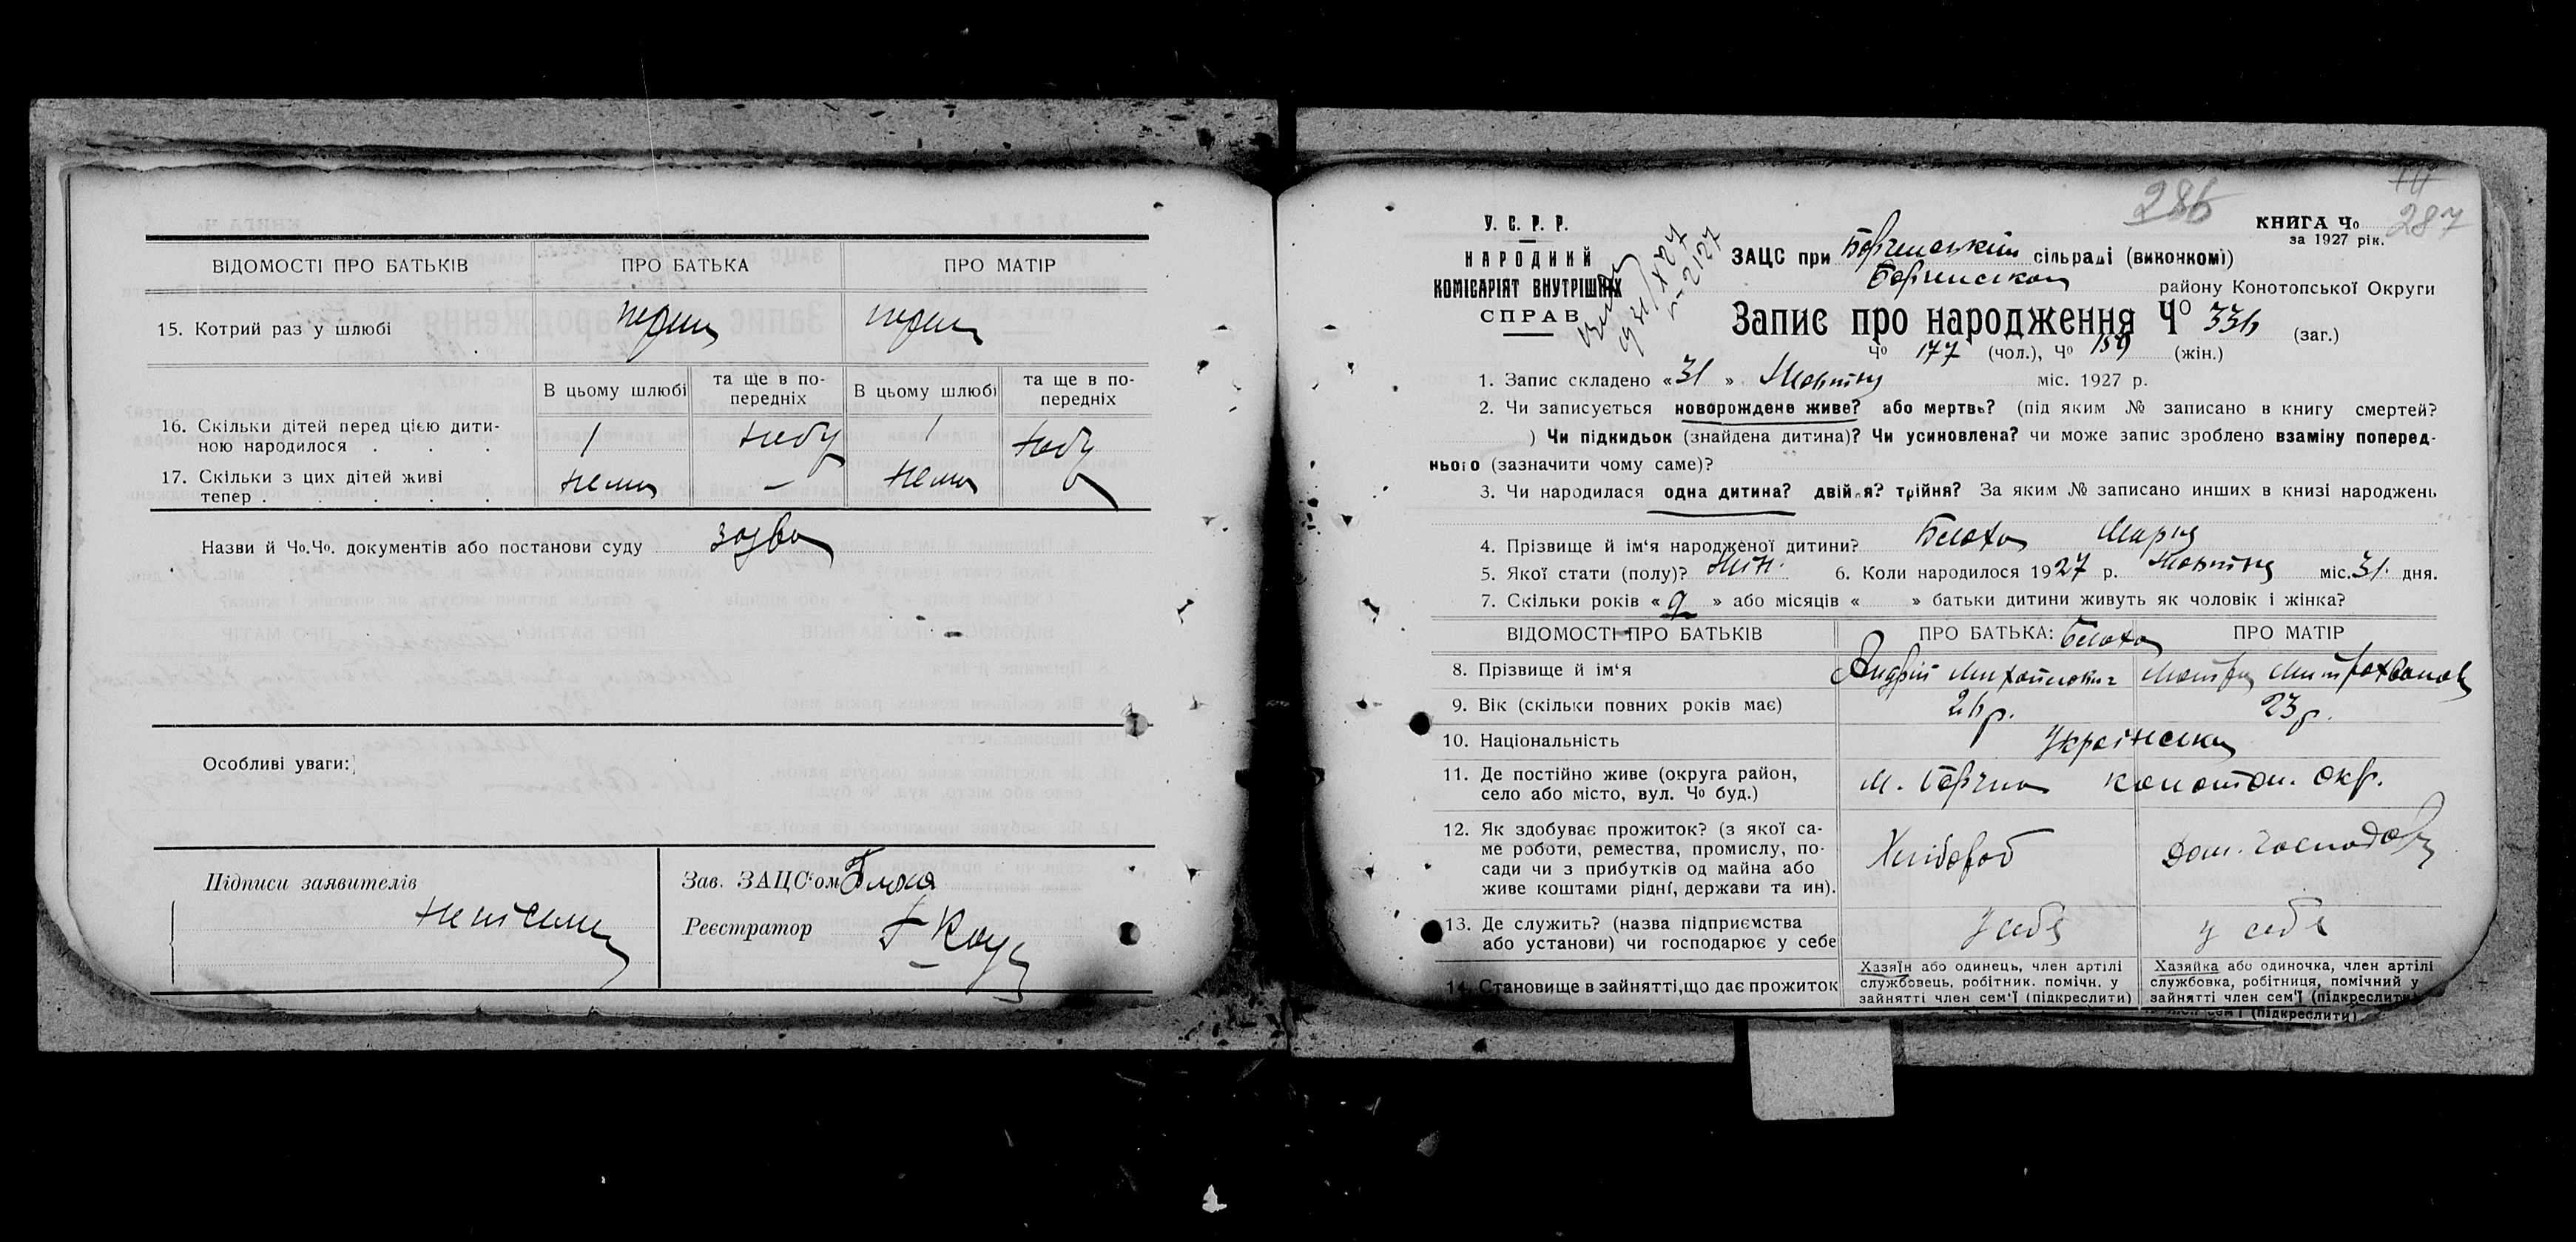 ВІДОМОСТІ ПРО БАТЬКІВ ПРО БАТЬКА ПРО МАТІР
15. Котрий раз у шлюбі
В цьому шлюбі та ще в по-передніх В цьому шлюбі та ще в по-передніх
16. Скільки дітей перед цією дити-
ною народилося . . . 1 небу 1 небу
17. Скільки з цих дітей живі
тепер . . . . . нема — нема
Назви й Чо.Чо. документів або постанови суду заява
Особливі уваги:
Підписи заявителів Зав. ЗАЦС'ом
неписьмен Реєстратор
286
287
У. С. Р. Р.
НАРОДНИЙ
КОМІСАРІЯТ ВНУТРІШНІХ
СПРАВ
КНИГА Чо
за 1927 рік.
ЗАЦС при Борзенській сільраді (виконкомі)
Борзенском району Конотопської Округи
Запис про народження Чо 336 (заг.)
Чо 177 (чол.), Чо 159 (жін.)
1. Запис складено «31» Жовтня міс. 1927 р.
2. Чи записується новорождене живе? або мертве? (під яким № записано в книгу смертей?
) Чи підкидьок (знайдена дитина)? Чи усиновлена? чи може запис зроблено взаміну поперед-
нього (зазначити чому саме)?
3. Чи народилася одна дитина? двійня? трійня? За яким № записано инших в книзі народжень
4. Прізвище й ім'я народженої дитини? Марія
5. Якої стати (полу)? жін. 6. Коли народилося 1927 р. Жовтня міс. 31 дня.
7. Скільки років « 9 » або місяців « » батьки дитини живуть як чоловік і жінка?
ВІДОМОСТІ ПРО БАТЬКІВ ПРО БАТЬКА: ПРО МАТІР
8. Прізвище й ім'я Андрій Михайлович Мотря Митрофанов
9. Вік (скільки повних років має) 26 р. 23 р.
10. Національність Українська
11. Де постійно живе (округа район,
село або місто, вул. Чо буд.) м. Борзна конотоп. окр.
12. Як здобуває прожиток? (з якої са-
ме роботи, ремества, промислу, по-
сади чи з прибутків од майна або
живе коштами рідні, держави та ин). Хлібороб Дом. господар
13. Де служить? (назва підприємства
або установи) чи господарює у себе у себе у себе
14. Становище в зайнятті, що дає прожиток
Хазяїн або одинець, член артілі
службовець, робітник. помічн. у
зайнятті член сем'ї (підкреслити)
Хазяйка або одиночка, член артілі
службовка, робітниця, помічний у
зайнятті член сем'ї (підкреслити)